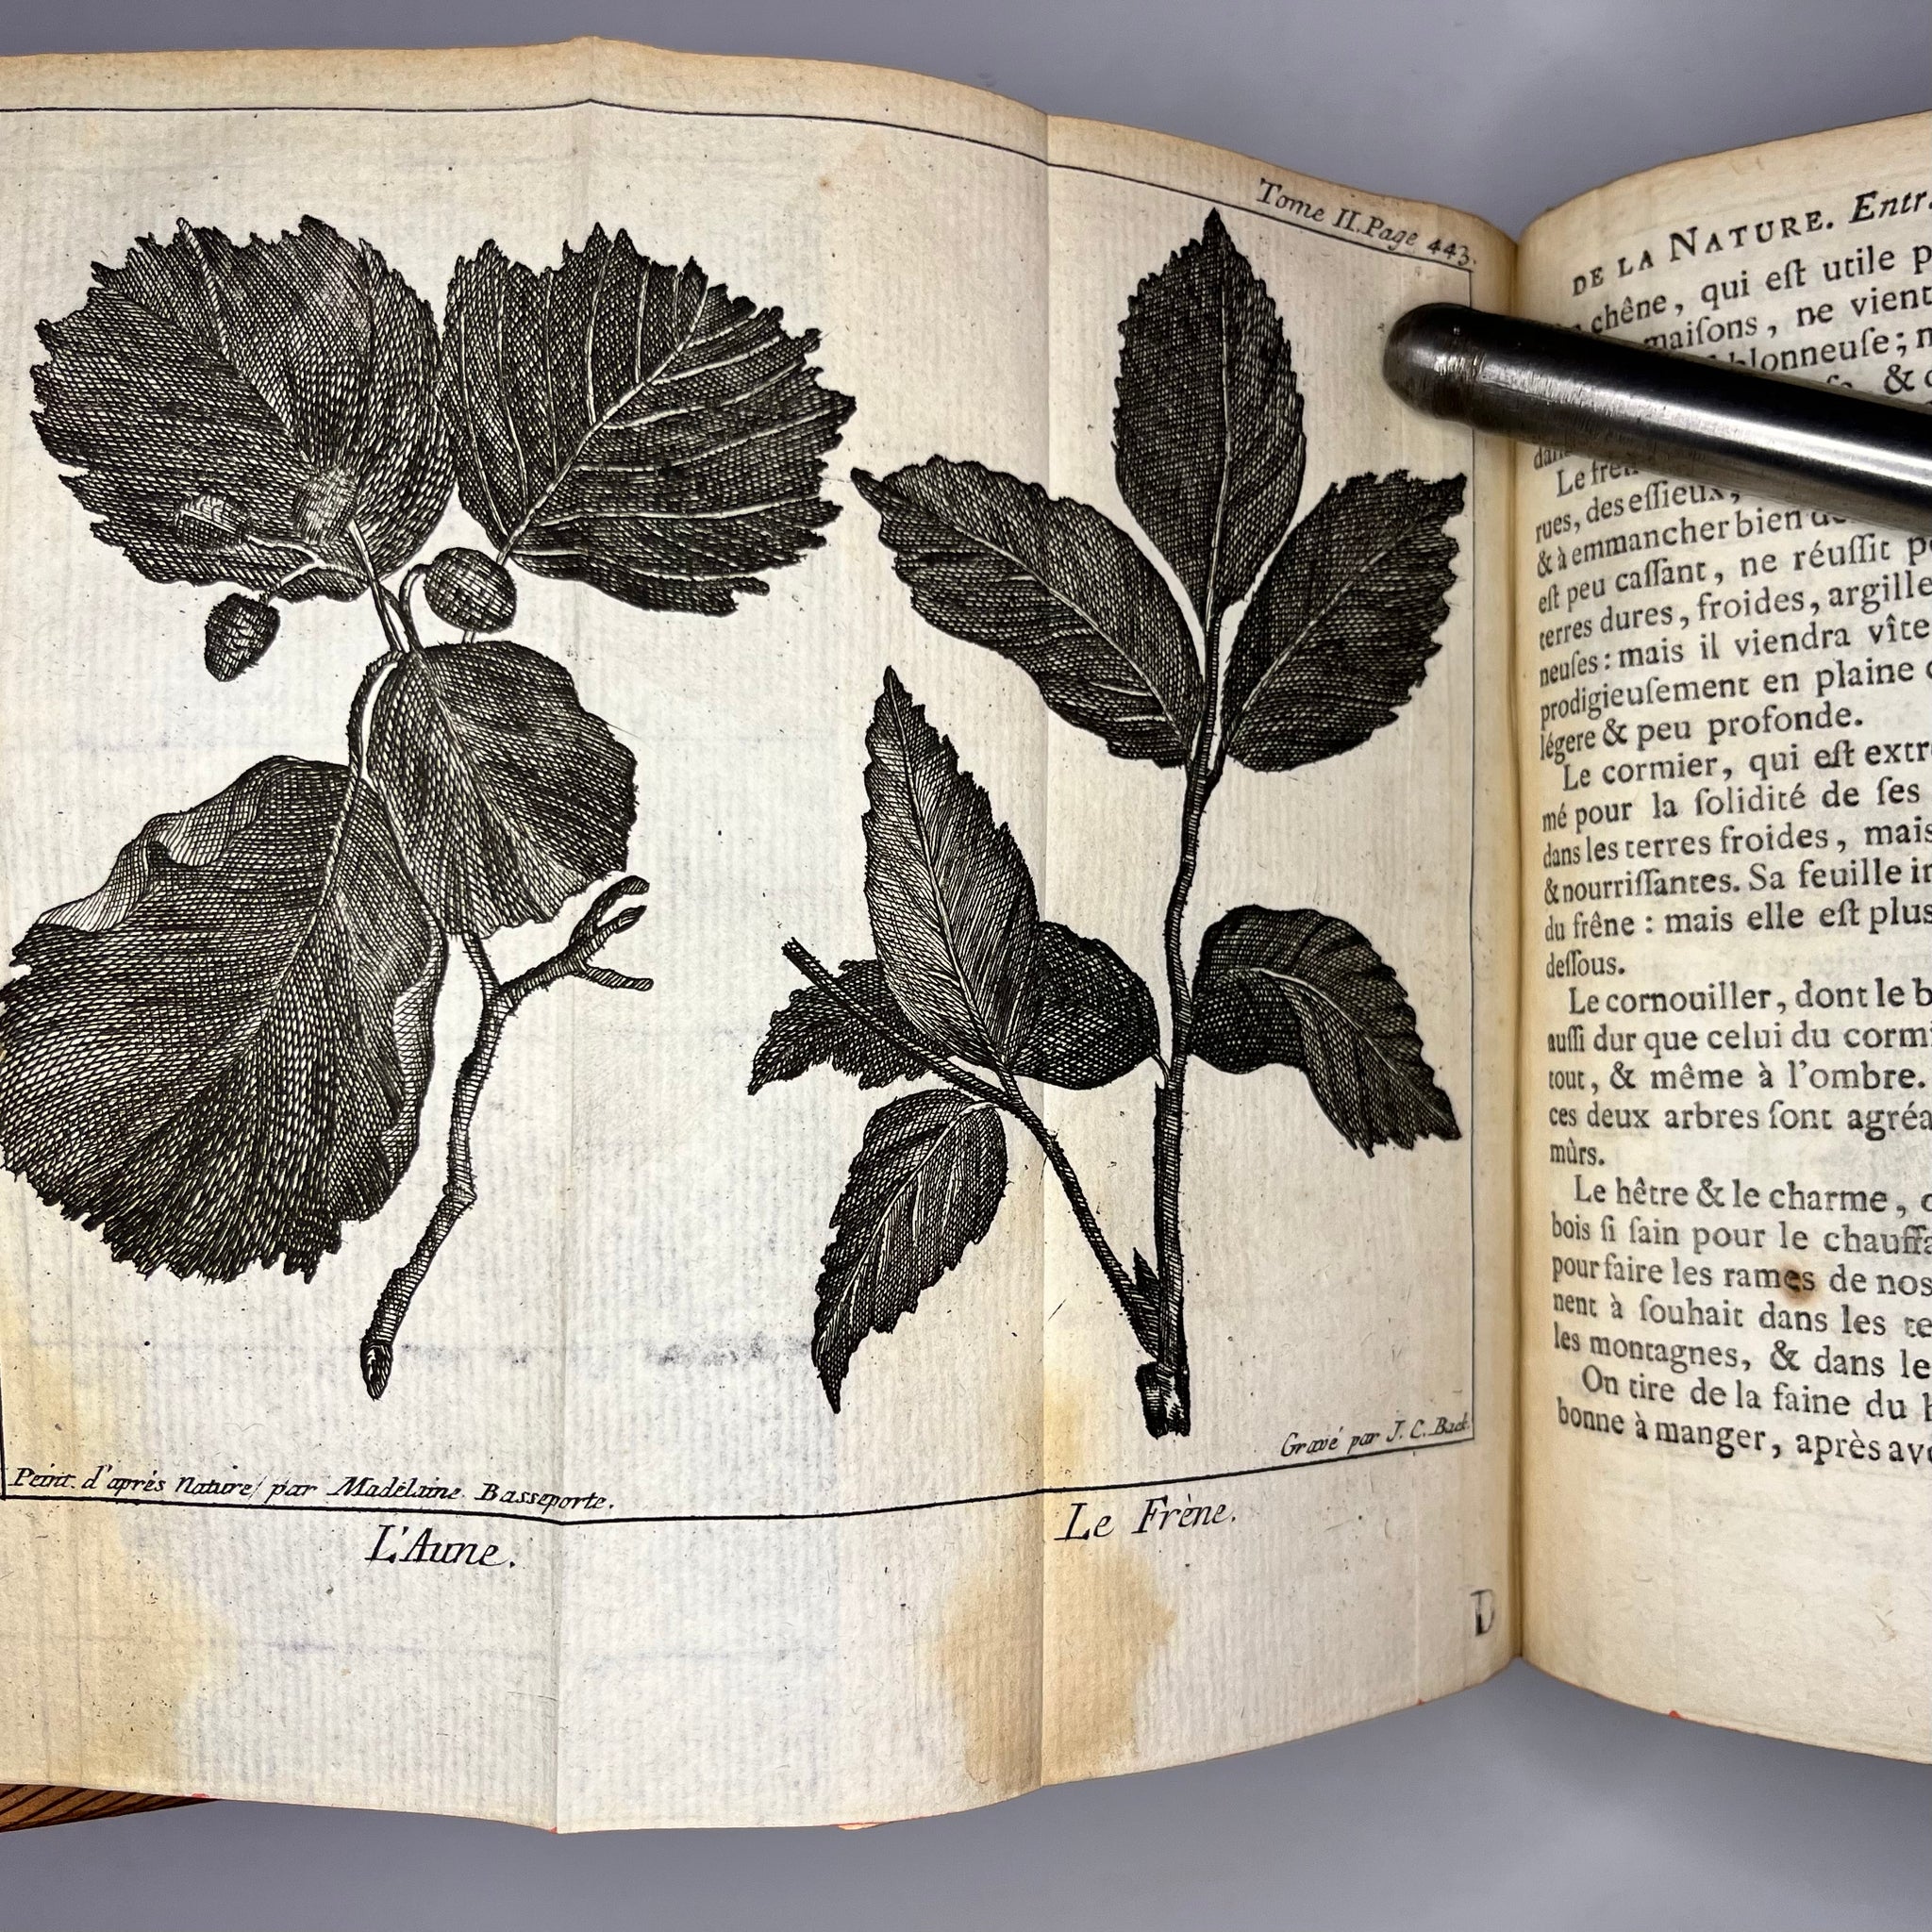 Tome II. Page 443.
Peint d'aprés Nature par Madelaine Basseporte.
Gravé par J. C. Back
L'Aune.
Le Frêne.
D
DE LA NATURE. Entr.
chêne, qui eſt utile
maiſons, ne vient
blonneuſe;
&
Le
rues, des eſſieux,
& à emmancher bien
eſt peu caſſant, ne réuſſit
terres dures, froides, argille
neuſes: mais il viendra vîte
prodigieuſement en plaine
légere & peu profonde.
Le cormier, qui eſt extr
mé pour la ſolidité de ſes
dans les terres froides, mais
& nourriſſantes. Sa feuille
du frêne: mais elle eſt plus
deſſous.
Le cornouiller, dont le b
auſſi dur que celui du corm
tout, & même à l'ombre.
ces deux arbres ſont agréa
mûrs.
Le hêtre & le charme,
bois ſi ſain pour le chauffa
pour faire les rames de nos
nent à ſouhait dans les te
les montagnes, & dans le
On tire de la faine du
bonne à manger, après av